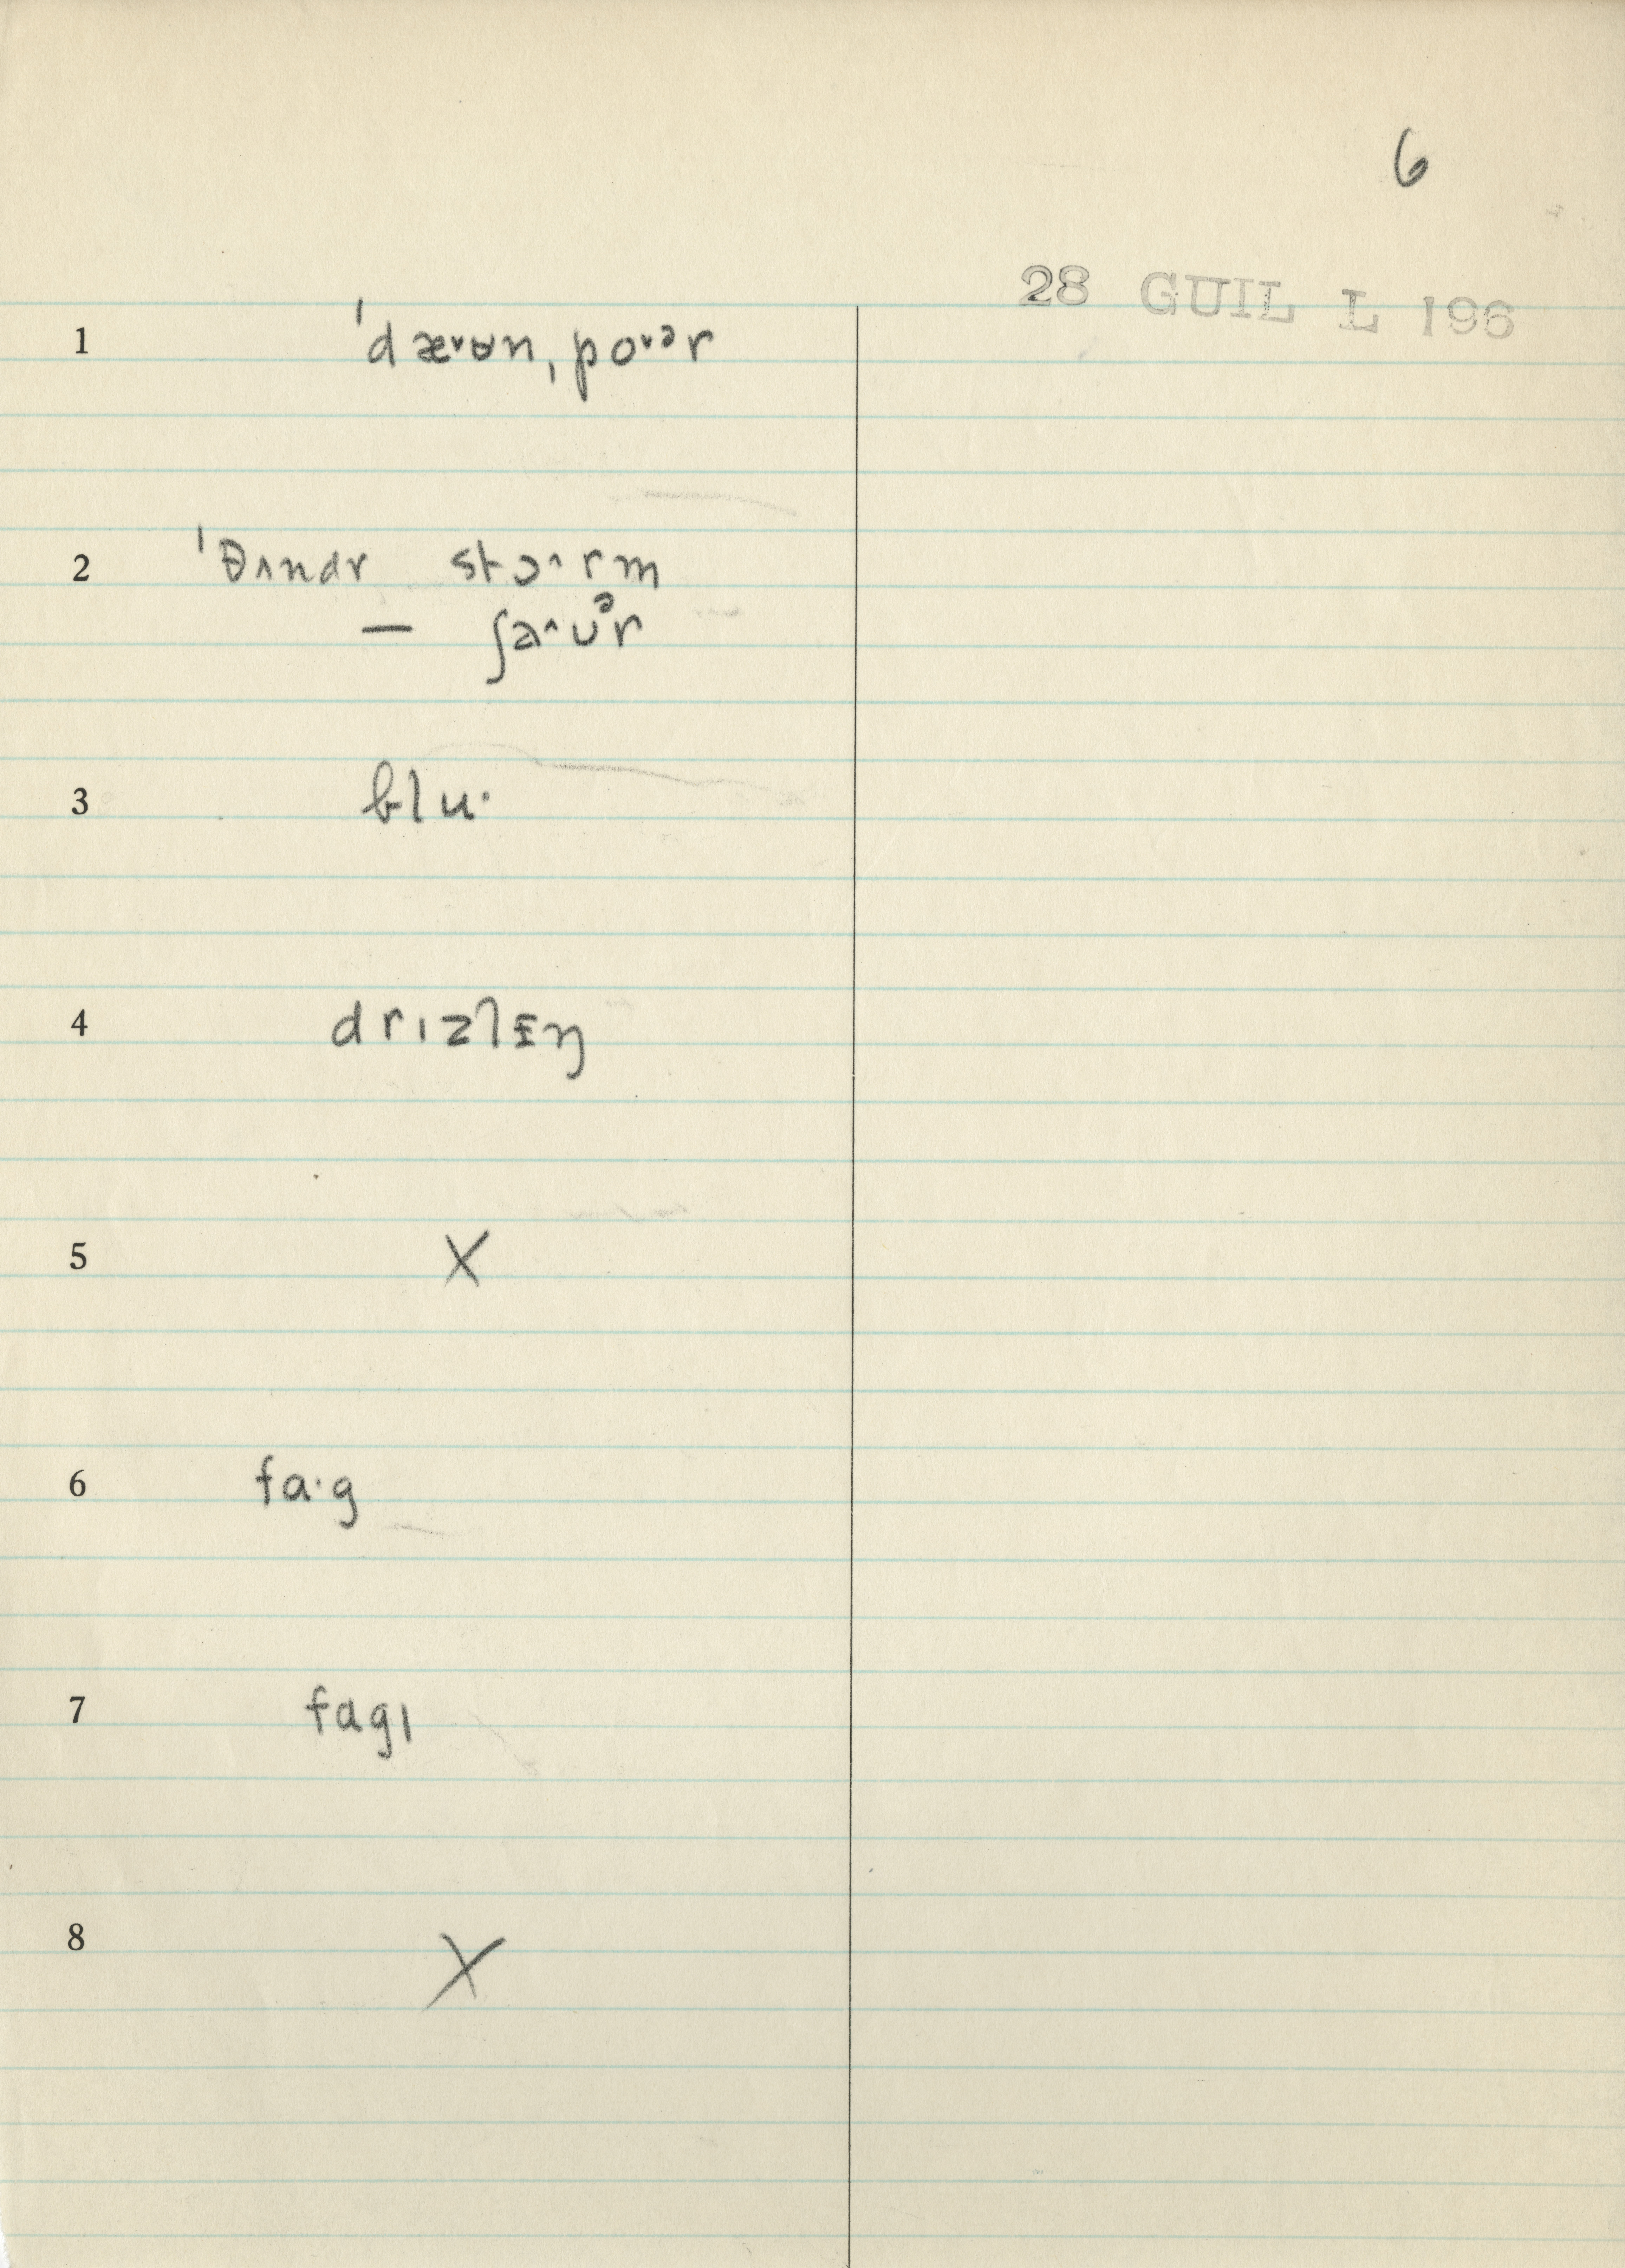 6
28 GUIL L 196
1 ˈdæ˅ʉn ˌpo˅ᵊr
2 ˈθʌndr stɔ˄rm
— ʃa˄ʊᵊr
3 blu·
4 drɪzlɪŋ
5 X
6 fɑ·g
7 fɑgɪ
8 X